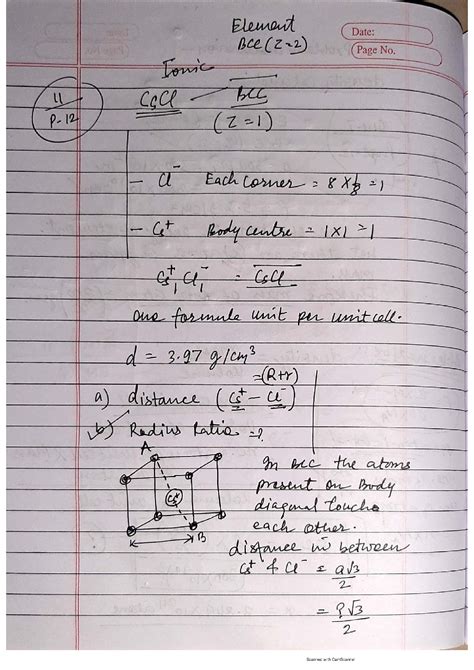 Element
BCC (Z=2)
Date:
Page No.
Ionic
11
P-12
CsCl — BCC
(Z=1)
- Cl⁻ Each Corner = 8 × 1/8 = 1
- Cs⁺ Body centre = 1×1 = 1
Cs⁺₁ Cl⁻₁ = CsCl
One formula unit per unit cell.
d = 3.97 g/cm³
=(R+r)
a) distance (Cs⁺ – Cl⁻)
b) Radius Ratio = ?
A
Cs⁺
B
In BCC the atoms
present on Body
diagonal touch
each other.
distance in between
Cs⁺ & Cl⁻ = a√3/2
= ?√3/2
Scanned with CamScanner